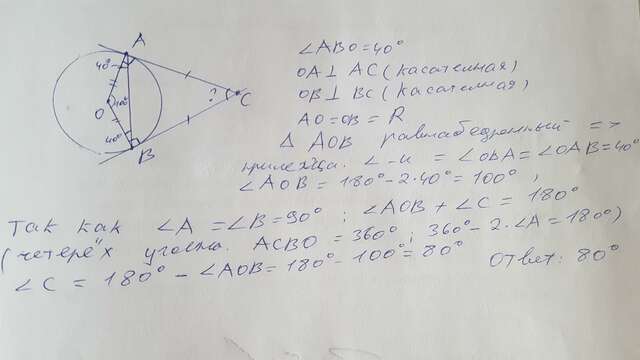 A
40°
O
100°
40°
B
?
C
∠ABO=40°
OA⊥AC (касательная)
OB⊥BC (касательная)
AO=OB=R
△ AOB равнобедренный =>
прилежща. ∠-и = ∠OBA=∠OAB=40°
∠AOB = 180°-2·40°=100°,
Так как ∠A=∠B=90°; ∠AOB+∠C=180°
(четерёх уголь. ACBO = 360°; 360°-2·∠A=180°)
∠C = 180° - ∠AOB=180°-100°=80°
Ответ: 80°